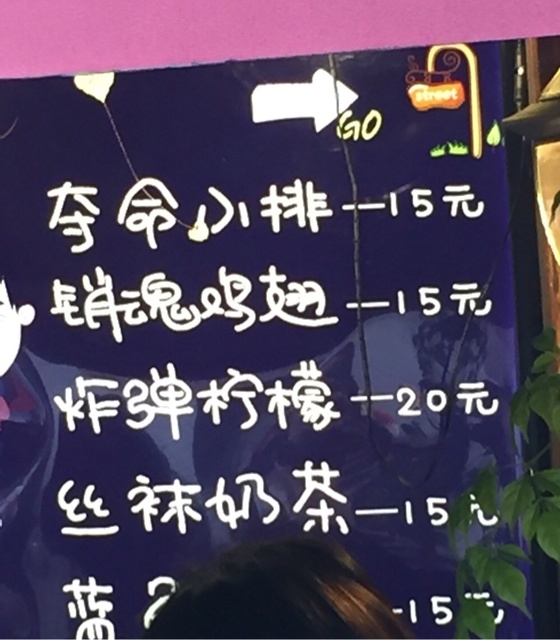 street
GO
夺命小排—15元
销魂鸡翅—15元
炸弹柠檬—20元
丝袜奶茶—15元
蓝 -15元